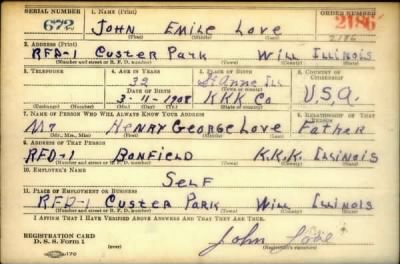 SERIAL NUMBER 1. NAME (Print) ORDER NUMBER
672 JOHN EMILE LOVE 2186
(First) (Middle) (Last) 2186
2. ADDRESS (Print)
RFD-1 CUSTER PARK WILL ILLINOIS
(Number and street or R. F. D. number) (Town) (County) (State)
3. TELEPHONE 4. AGE IN YEARS 5. PLACE OF BIRTH 6. COUNTRY OF CITIZENSHIP
32 St Anne Ill
DATE OF BIRTH (Town or county)
3-11-1908 KKK Co U.S.A.
(Exchange) (Number) (Mo.) (Day) (Yr.) (State or country)
7. NAME OF PERSON WHO WILL ALWAYS KNOW YOUR ADDRESS 8. RELATIONSHIP OF THAT PERSON
Mr HENRY GEORGE LOVE Father
(Mr., Mrs., Miss) (First) (Middle) (Last)
9. ADDRESS OF THAT PERSON
RFD-1 BONFIELD K.K.K. ILLINOIS
(Number and street or R. F. D. number) (Town) (County) (State)
10. EMPLOYER'S NAME
SELF
11. PLACE OF EMPLOYMENT OR BUSINESS
RFD-1 CUSTER PARK WILL ILLINOIS
(Number and street or R. F. D. number) (Town) (County) (State)
I AFFIRM THAT I HAVE VERIFIED ABOVE ANSWERS AND THAT THEY ARE TRUE.
REGISTRATION CARD
D. S. S. Form 1 John Love
(Registrant's signature)